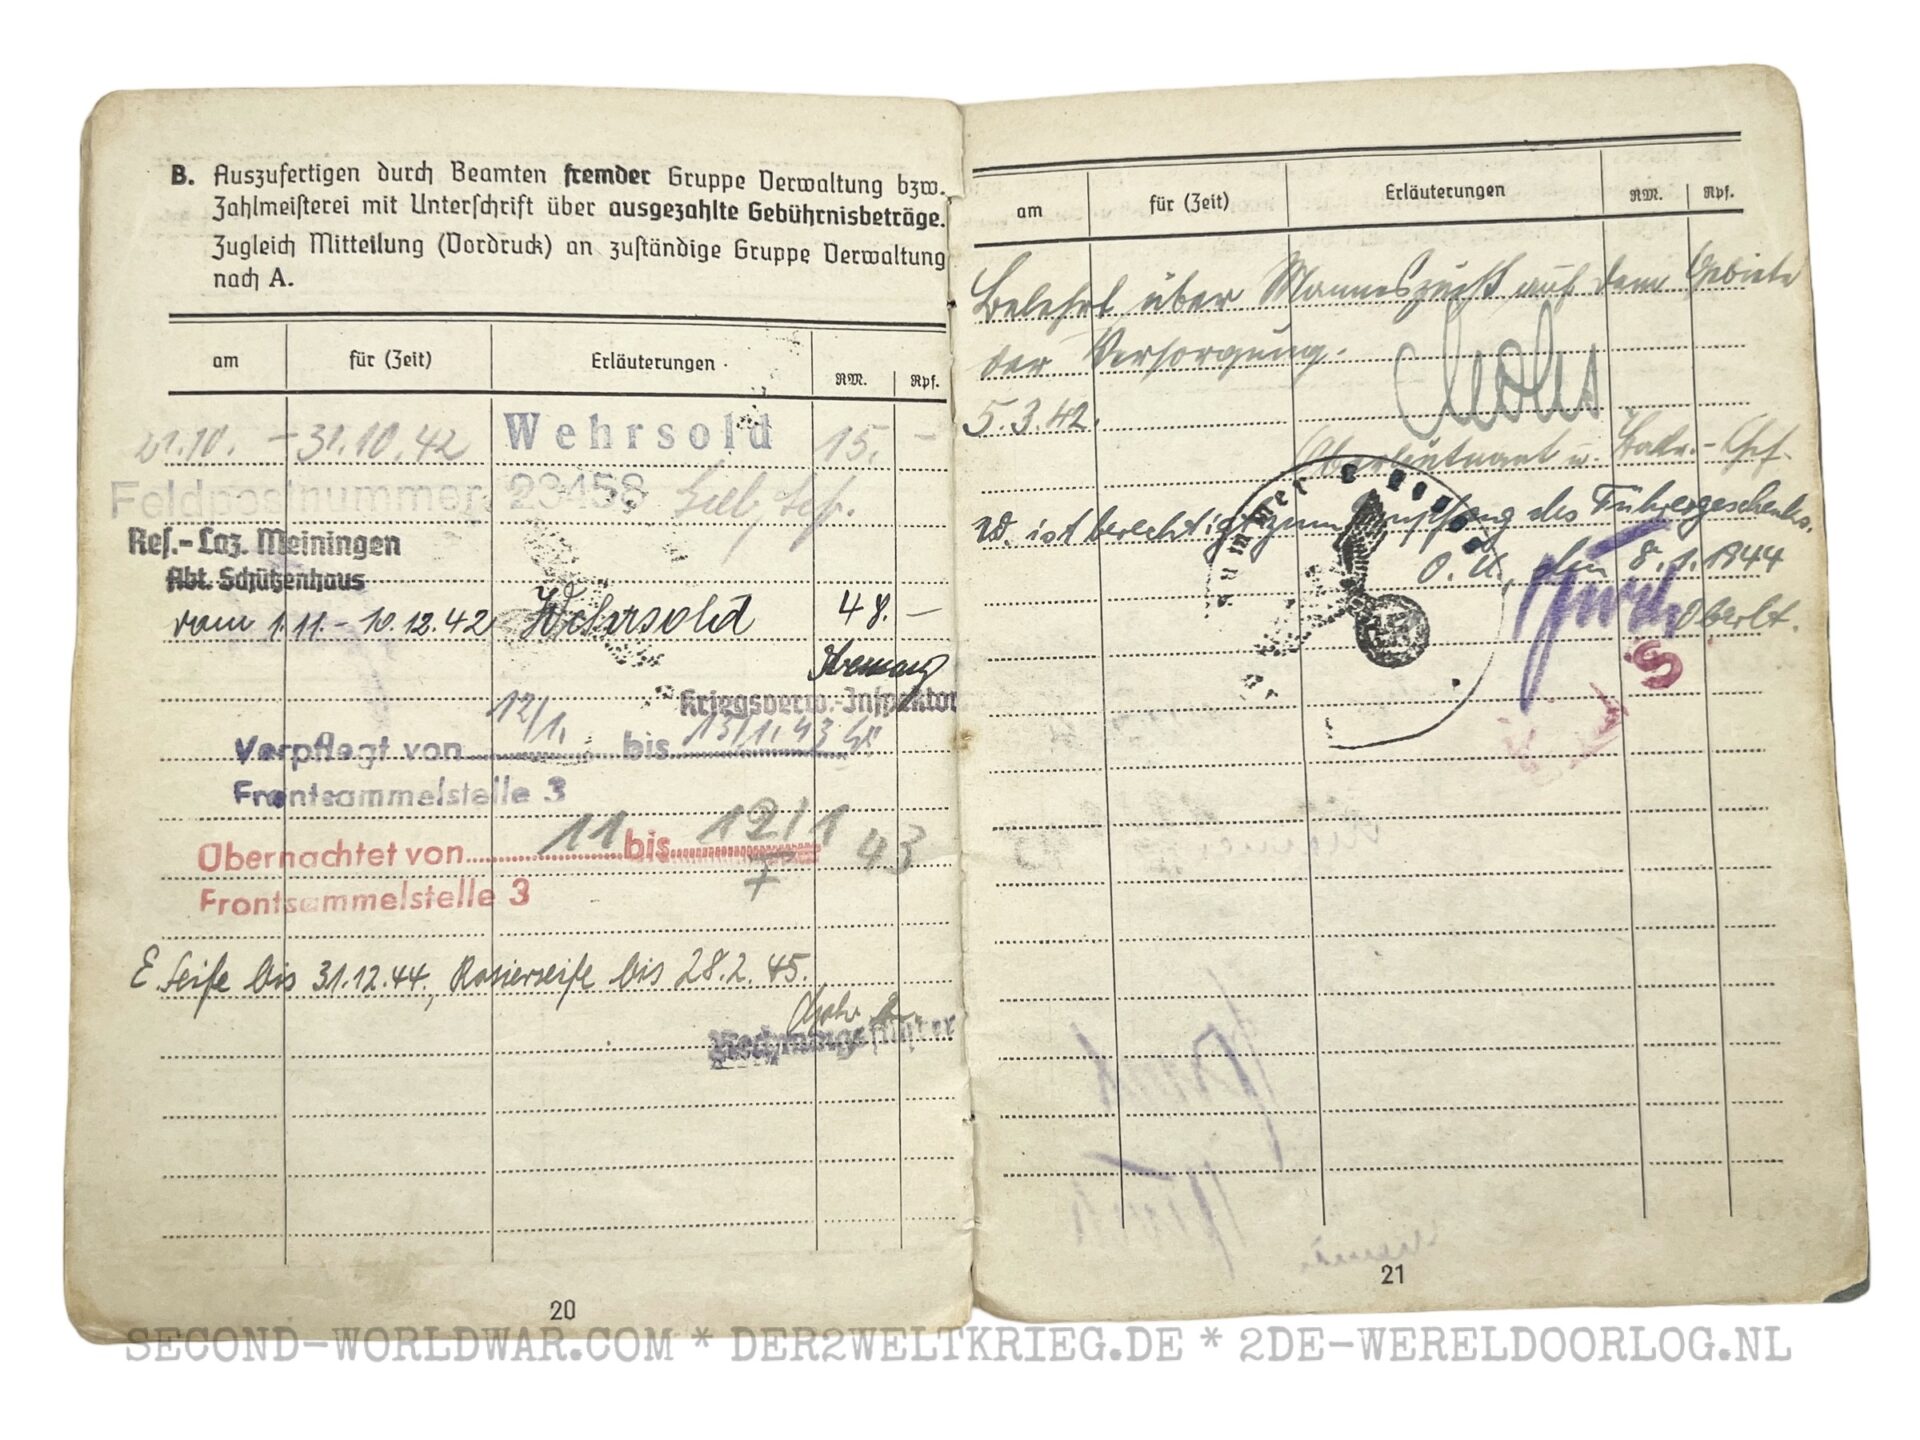 B. Auszufertigen durch Beamten fremder Gruppe Verwaltung bzw.
Zahlmeisterei mit Unterschrift über ausgezahlte Gebührnisbeträge.
Zugleich Mitteilung (Vordruck) an zuständige Gruppe Verwaltung
nach A.
am für (Zeit) Erläuterungen RM. Rpf.
21.10. – 31.10.42 Wehrsold 15. –
Feldpostnummer 23458
Res.-Laz. Meiningen
Abt. Schützenhaus
vom 1.11. – 10.12.42 Wehrsold 48. –
Kriegsverw.-Inspektor
Verpflegt von 12/1. bis 13/1.43
Frontsammelstelle 3
Übernachtet von 11 bis 12/1 43
Frontsammelstelle 3
E. Seife bis 31.12.44, Rasierseife bis 28.2.45.
Rechnungsführer
20
am für (Zeit) Erläuterungen RM. Rpf.
Belehrt über Manneszucht auf dem Gebiete
der Versorgung.
5.3.42.
Oberleutnant u. Battr.-Chef.
ist berechtigt zum Empfang des Führergeschenks.
O.U., den 8.1.1944
Oberlt.
21
SECOND-WORLDWAR.COM * DER2WELTKRIEG.DE * 2DE-WERELDOORLOG.NL